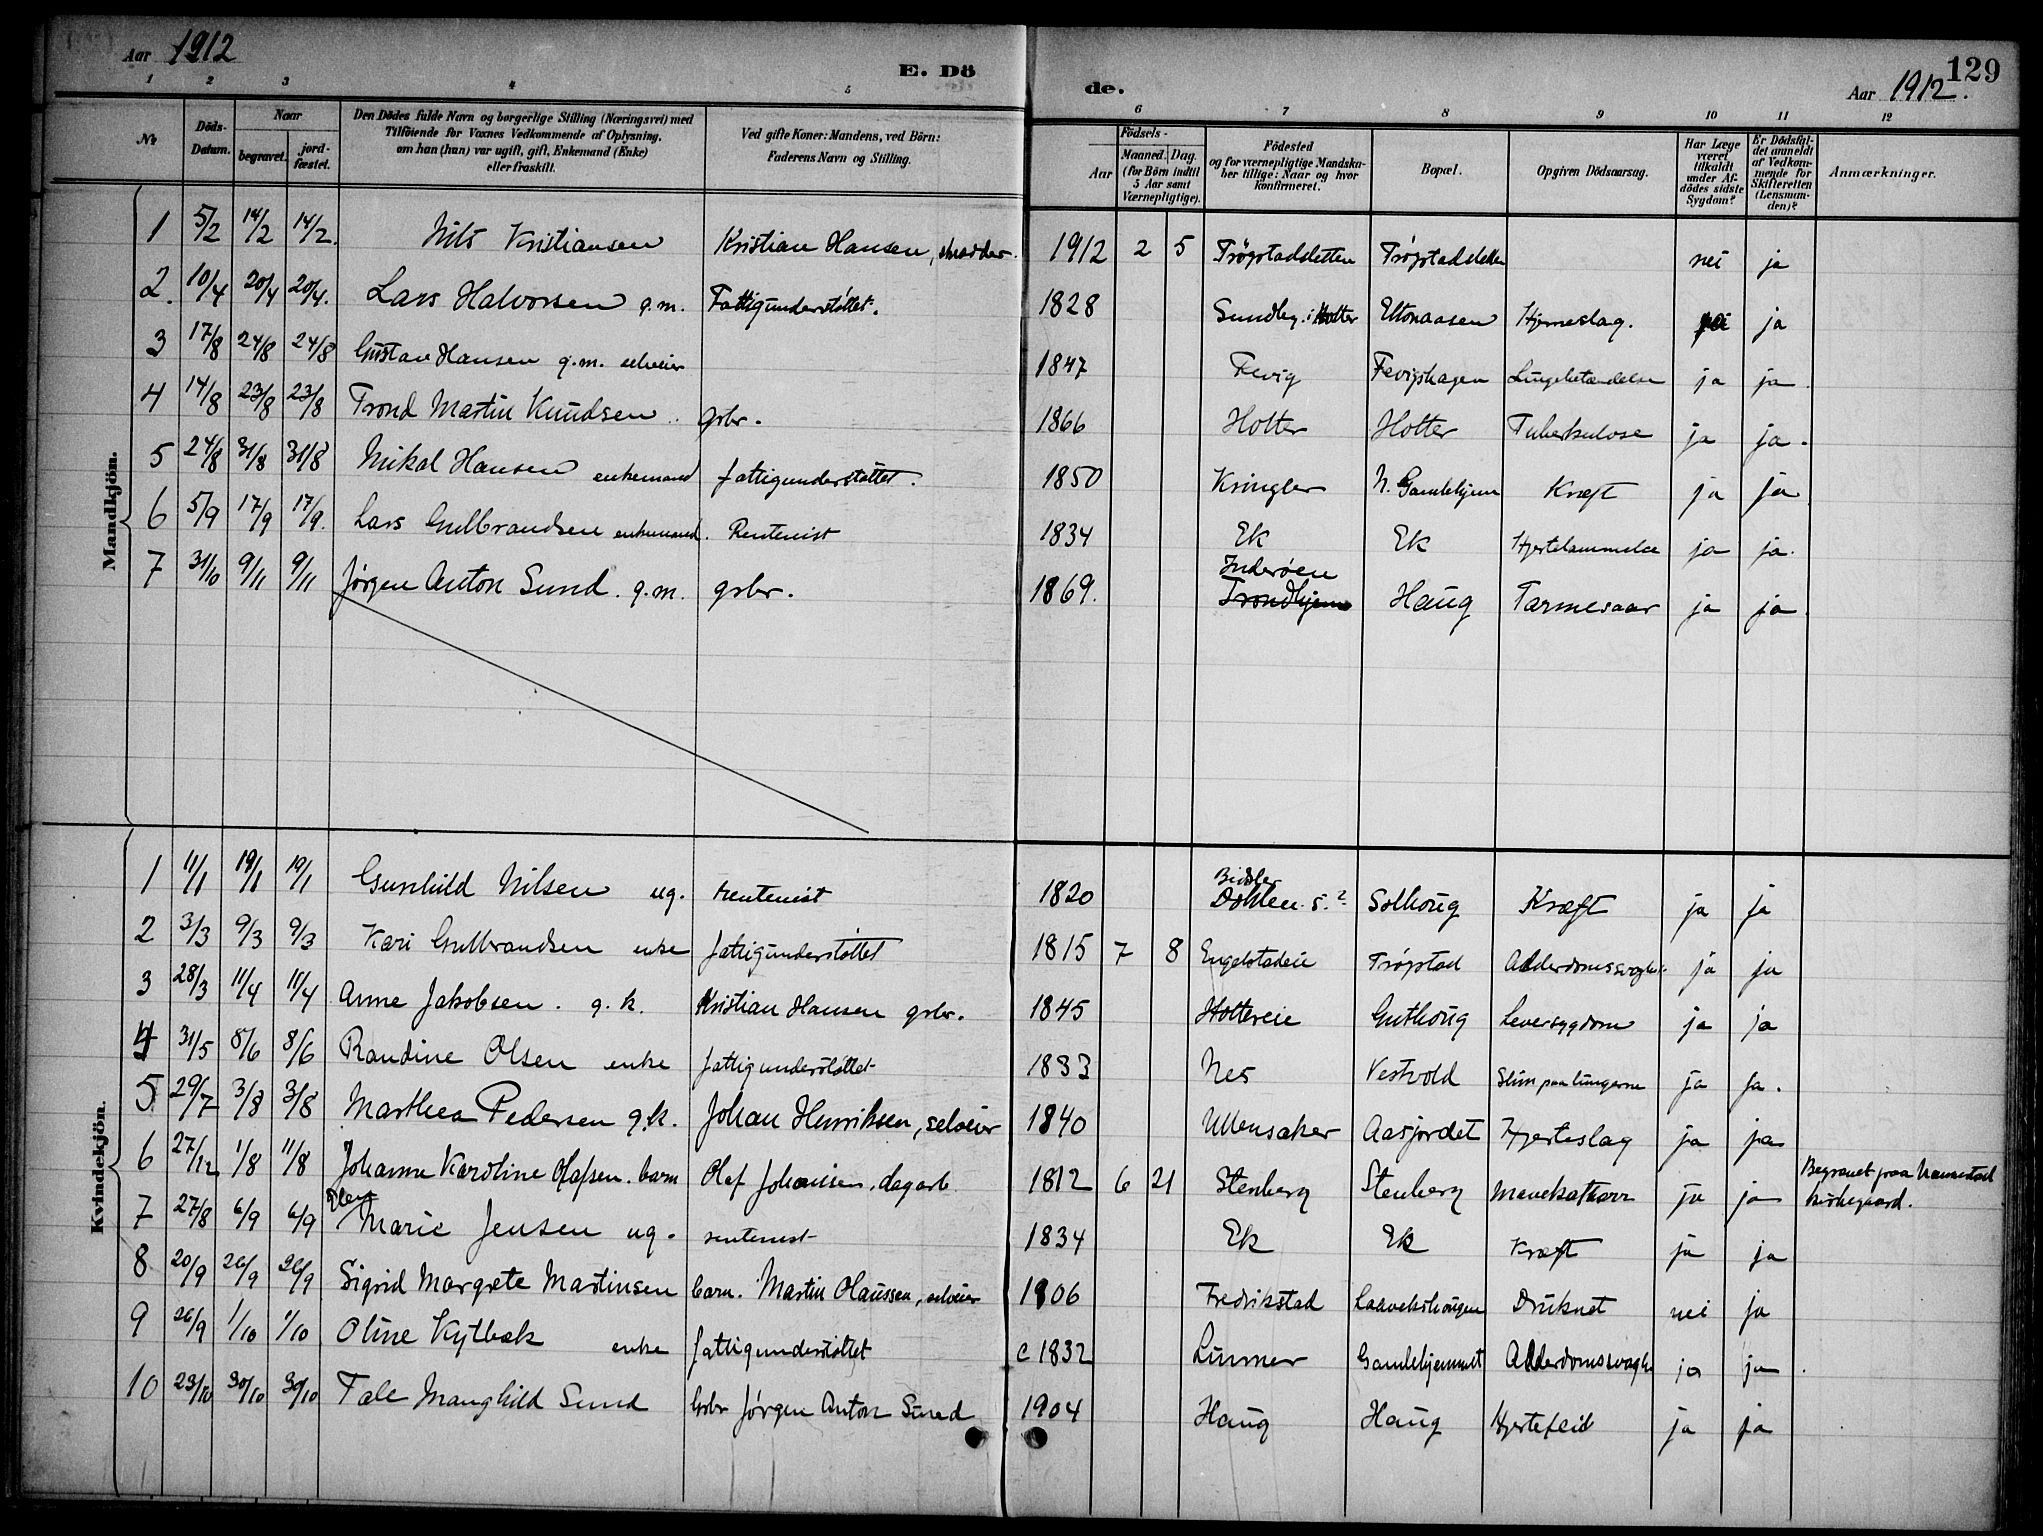 Aar 1912
E. Dö
de.
Aar 1912.
129
1 2 3 4 5 6 7 8 9 10 11 12
No
Döds-Datum.
Naar
begravet.
jord-fæstet.
Den Dödes fulde Navn og borgerlige Stilling (Næringsvei) med
Tilföiende for Voxnes Vedkommende af Oplysning,
om han (hun) var ugift, gift, Enkemand (Enke)
eller fraskilt.
Ved gifte Koner: Mandens, ved Börn:
Faderens Navn og Stilling.
Födsels-
Aar
Maaned. Dag.
(for Börn indtil
5 Aar samt
Værnepligtige).
Födested
og for værnepligtige Mandska-
ber tillige: Naar og hvor
konfirmeret.
Bopæl.
Opgiven Dödsaarsag.
Har Læge
været
tilkaldt
under Af-
dödes sidste
Sygdom?
Er Dödsfal-
det anmeldt
af Vedkom-
mende for
Skifteretten
(Lensman-
den)?
Anmærkninger.
Mandkjön.
1 5/2 14/2 14/2. Nils Kristiansen Kristian Hansen, skrædder. 1912 2 5 Trøgstadsletten Trøgstadsletten nei ja
2. 10/4 20/4 20/4. Lars Halvorsen g.m. Fattigunderstøttet. 1828 Sundby i Holter Eltonaasen Hjerneslag. nei ja
3 17/8 24/8 24/8 Gustav Hansen g.m. selveier 1847 Fevig Fevigshagen Lungebetændelse ja ja
4 14/8 23/8 23/8 Trond Martin Knudsen grbr. 1866 Holter Holter Tuberkulose ja ja.
5 24/8 31/8 31/8 Mikal Hansen enkemand fattigunderstøttet. 1850 Kringler N. Gamlehjem Kræft ja ja
6 5/9 17/9 17/9. Lars Gulbrandsen enkemand. Rentenist 1834 Ek Ek Hjertelammelse ja ja.
7 31/10 9/11 9/11 Jørgen Anton Sund. g.m. grbr. 1869. Inderøen Trondhjem Haug Tarmesaar ja ja
Kvindekjön.
1 11/1 19/1 19/1 Gunhild Nilsen ug. rentenist 1820 Dohlen s. ? Solhoug Kræft ja ja
2 3/3 9/3 9/3 Kari Gulbrandsen enke fattigunderstøttet 1815 7 8 Engelstadeie Trøgstad Alderdomssvaghe. ja ja
3 28/3 11/4 11/4 Anne Jakobsen. g.k. Kristian Hansen grbr. 1845 Holtereie Guthoug Leversygdom ja ja
4 31/5 8/6 8/6 Randine Olsen enke fattigunderstøttet 1833 Nes Vestvold Slim paa lungerne ja ja.
5 29/7 3/8 3/8 Marthea Pedersen g.k. Johan Henriksen, selveier 1840 Ullensaker Aasjordet Hjerteslag ja ja
6 27/12 1/8 11/8 Johanne Karoline Olafsen. barn Olaf Johansen, dagarb 1812 6 21 Stenberg Stenberg Mavekatharr ja ja Begravet paa Nannestad kirkegaard.
7 27/8 6/9 6/9 Marie Jensen ug. rentenist 1834 Ek Ek Kræft ja ja
8 20/9 26/9 26/9 Sigrid Margrete Martinsen barn. Martin Olaussen, selveier 1906 Fredrikstad Laavekshougen Druknet nei ja
9 26/9 1/10 1/10 Oline Kylbæk enke fattigunderstøttet c 1832 Linner Gamlehjemmet Alderdomssvaghe ja ja
10 23/10 30/10 30/10 Tale Manghild Sund Grbr Jørgen Anton Sund 1904 Haug Haug Hjertefeil ja ja